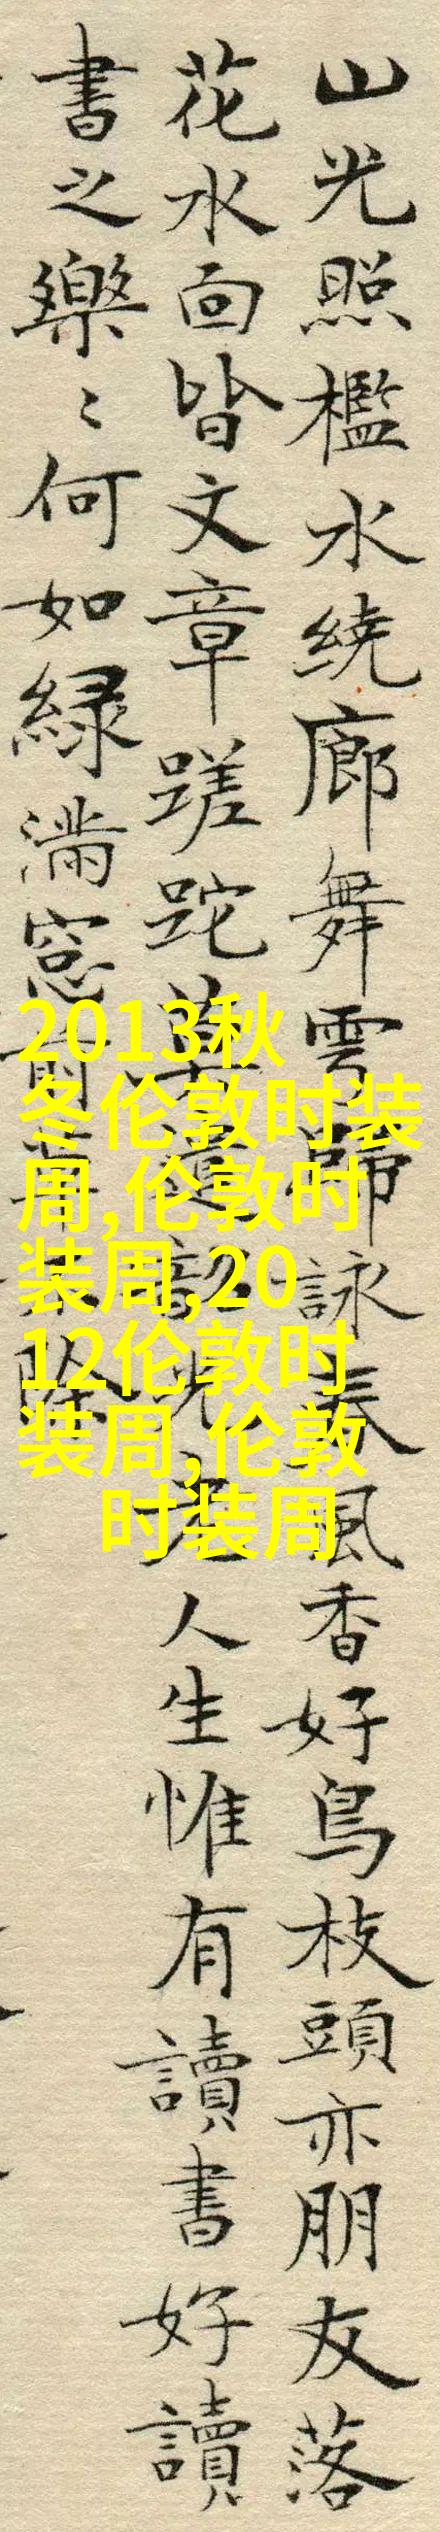 山光照檻水绕廊舞雩歸詠春風香好鳥枝頭亦朋友落
花水面皆文章蹉跎莫遣韶光老人生惟有讀書好讀
書之樂〻何如緑满窓前草不除
2013秋
冬伦敦时装
周,伦敦时
装周,20
12伦敦时
装周,伦敦
时装周